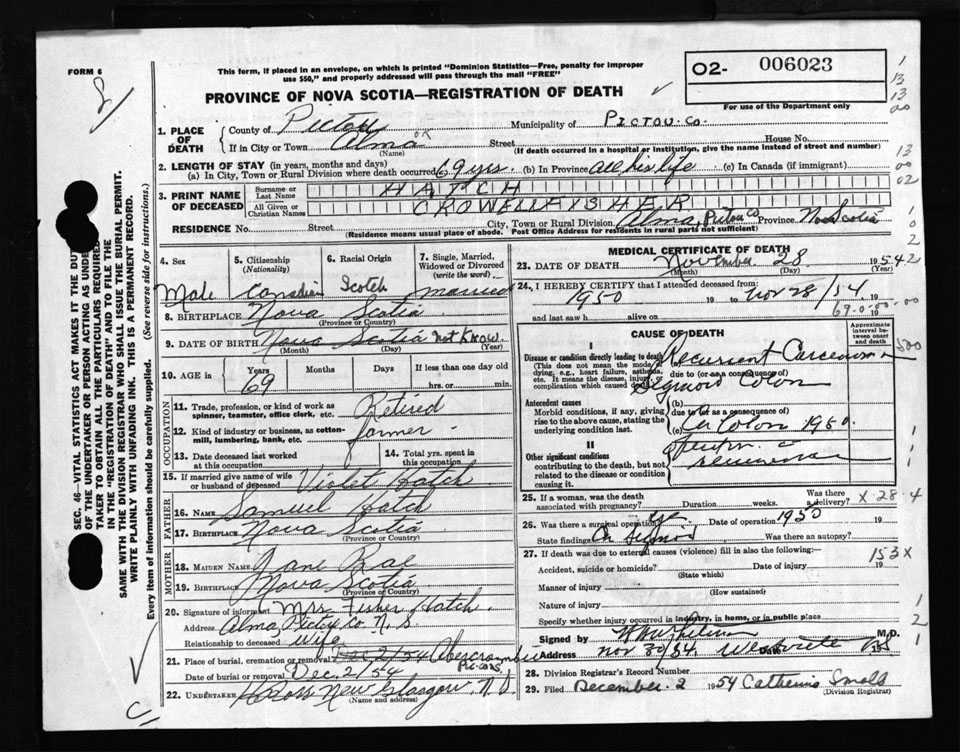 FORM 6
This form, if placed in an envelope, on which is printed "Dominion Statistics—Free, penalty for improper
use $50," and properly addressed will pass through the mail "FREE"
PROVINCE OF NOVA SCOTIA—REGISTRATION OF DEATH
O2- 006023
For use of the Department only
1. PLACE OF DEATH
County of Pictou Municipality of PICTOU. CO.
If in City or Town Alma Street House No.
(Name) (If death occurred in a hospital or institution, give the name instead of street and number)
2. LENGTH OF STAY (in years, months and days)
(a) In City, Town or Rural Division where death occurred 69 yrs. (b) In Province all his life (c) In Canada (if immigrant)
3. PRINT NAME OF DECEASED
Surname or Last Name HATCH
All Given or Christian Names CROWELL FISHER
RESIDENCE No. Street City, Town or Rural Division Alma, Pictou Co Province Nova Scotia
(Residence means usual place of abode. Post Office Address for residents in rural parts not sufficient)
4. Sex
Male
5. Citizenship (Nationality)
Canadian
6. Racial Origin
Scotch
7. Single, Married, Widowed or Divorced (write the word)
married
8. BIRTHPLACE Nova Scotia
(Province or Country)
9. DATE OF BIRTH Nova Scotia Not Know.
(Month) (Day) (Year)
10. AGE in
Years Months Days If less than one day old
69 hrs. or min.
OCCUPATION
11. Trade, profession, or kind of work as spinner, teamster, office clerk, etc. Retired
12. Kind of industry or business, as cotton-mill, lumbering, bank, etc. farmer
13. Date deceased last worked at this occupation
14. Total yrs. spent in this occupation
15. If married give name of wife or husband of deceased Violet Hatch
FATHER
16. NAME Samuel Hatch
17. BIRTHPLACE Nova Scotia
(Province or Country)
MOTHER
18. MAIDEN NAME Jane Rae
19. BIRTHPLACE Nova Scotia
(Province or Country)
20. Signature of informant Mrs. Fisher Hatch.
Address Alma, Pictou Co. N. S.
Relationship to deceased Wife
21. Place of burial, cremation or removal Dec 2/54 Abercrombie
Date of burial or removal Dec. 2/54
22. UNDERTAKER New Glasgow, N. S.
(Name and address)
MEDICAL CERTIFICATE OF DEATH
23. DATE OF DEATH November 28 1954
(Month) (Day) (Year)
24. I HEREBY CERTIFY that I attended deceased from:
1950 19 to Nov 28/54 19
and last saw h alive on 19
69-0-00-00
CAUSE OF DEATH
Approximate interval between onset and death
I
Disease or condition directly leading to death (a) Recurrent Carcenoma
(This does not mean the mode of dying, e.g., heart failure, asthma, etc. It means the disease, injury, or complication which caused death)
due to (or as a consequence of)
Sigmoid Colon
Antecedent causes (b)
Morbid conditions, if any, giving rise to the above cause, stating the underlying condition last.
due to (or as a consequence of)
(c) Ca Colon 1950.
II
Other significant conditions
contributing to the death, but not related to the disease or condition causing it.
25. If a woman, was the death associated with pregnancy? Duration weeks. Was there a delivery?
X 28.4
26. Was there a surgical operation? yes Date of operation 1950 19
State findings Ca Sigmoid Was there an autopsy?
27. If death was due to external causes (violence) fill in also the following:—
Accident, suicide or homicide? Date of injury 19
(State which)
153X
Manner of injury
(How sustained)
Nature of injury
Specify whether injury occurred in industry, in home, or in public place
Signed by M.D.
Address Nov 30/54 Westville NS
28. Division Registrar's Record Number
29. Filed December. 2 1954 Catherine Small
(Division Registrar)
SEC. 46—VITAL STATISTICS ACT MAKES IT THE DUTY
OF THE UNDERTAKER OR PERSON ACTING AS UNDER-
TAKER TO OBTAIN ALL THE PARTICULARS REQUIRED
IN THE "REGISTRATION OF DEATH" AND TO FILE THE
SAME WITH THE DIVISION REGISTRAR WHO SHALL ISSUE THE BURIAL PERMIT.
WRITE PLAINLY WITH UNFADING INK. THIS IS A PERMANENT RECORD.
Every item of information should be carefully supplied. (See reverse side for instructions.)